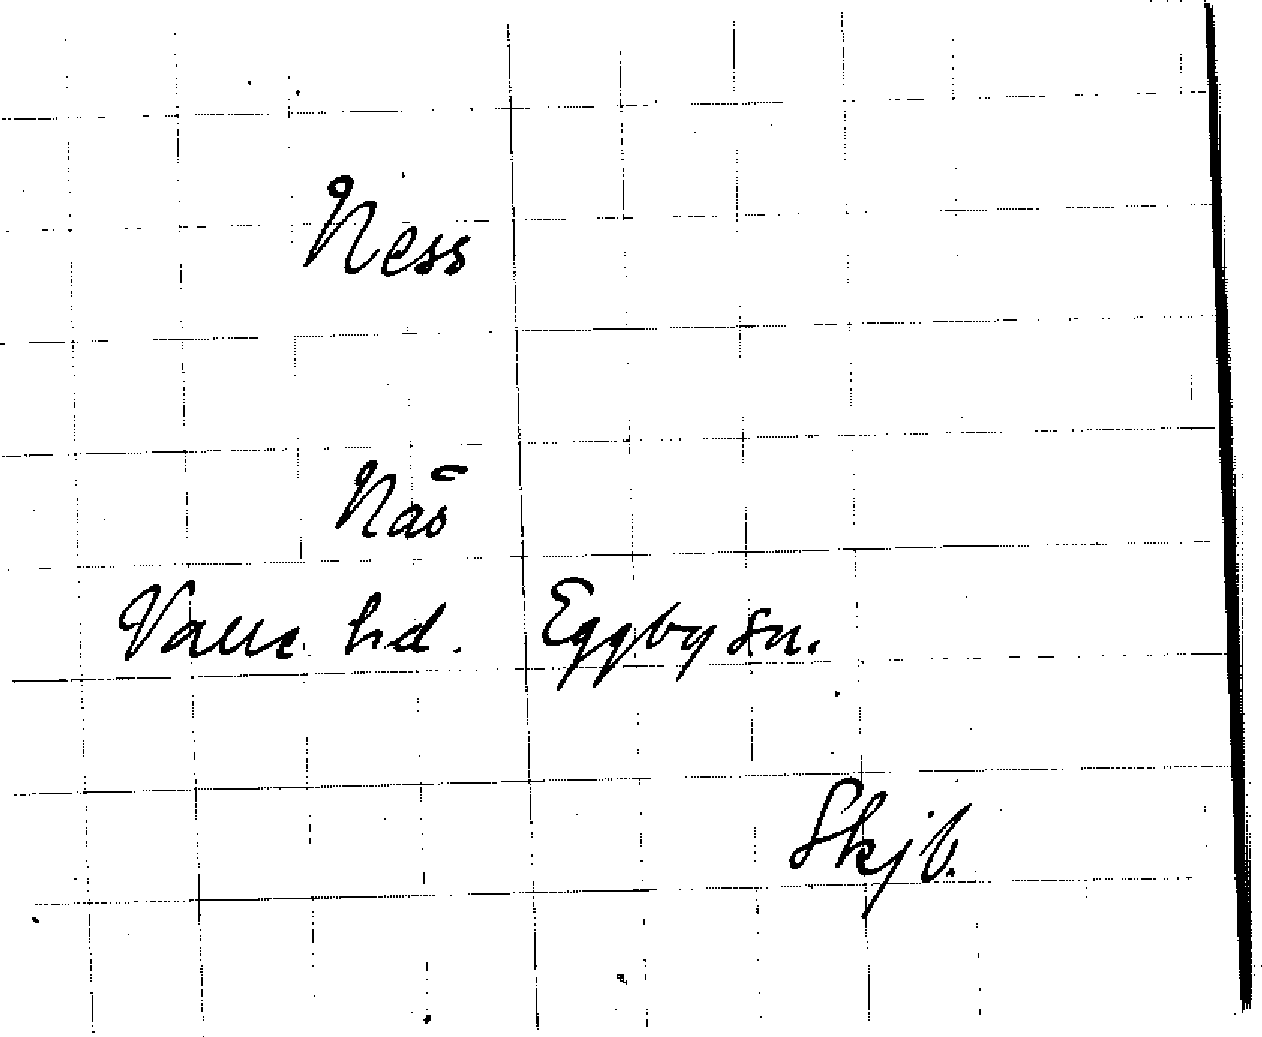 Ness
Näs
Valle hd. Eggby sn.
Skjb.